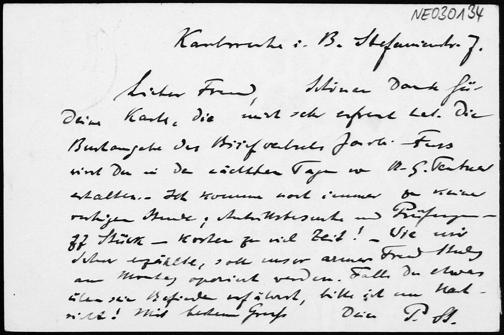 NE030134
Karlsruhe i. B. Stefanienstr. 7.
Lieber Freund, Schönen Dank für
Deine Karte, die mich sehr erfreut hat. Die
Buchausgabe des Briefwechsels Jacobi-Fuss
wirst Du in den nächsten Tagen von B. G. Teubner
erhalten. - Ich komme noch immer zu keiner
ruhigen Stunde; Antrittsbesuche und Prüfungen -
Stück - kosten zu viel Zeit! - Wie mir
erzählte, soll unser armer Freund
am Montag operiert werden. Falls Du etwas
über sein Befinden erfährst, bitte ich um Nach-
richt! Mit bestem Gruß Dein P. St.